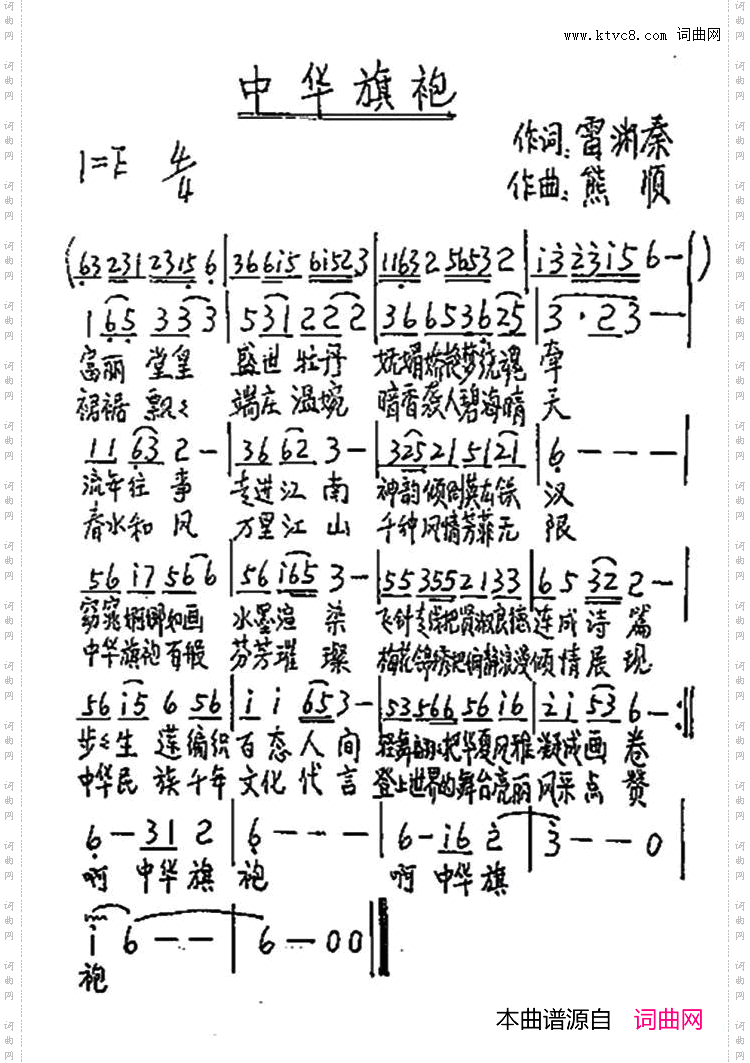 www.ktvc8.com 词曲网
中华旗袍
1=F 4/4
作词:雷渊秦
作曲:熊 顺
(63 231 2315 6 | 36 6i5 6i523 | 1163 2 5653 2 | i3 23i5 6 - | )
1 65 3 33 3 | 5 31 2 2 2 | 36 653625 | 3 · 23 - |
富丽 堂皇 盛世 牡丹 妩媚娇艳梦绕魂 牵
裙裾 飘々 端庄 温婉 暗香袭人碧海晴 天
11 63 2 - | 36 62 3 - | 325215121 | 6 - - - |
流年往 事 走进江 南 神韵倾倒 汉
春水和 风 万里江 山 千种风情芳菲无 限
56 i7 56 6 | 56 i65 3 - | 553552133 | 6 5 32 2 - |
窈窕婀娜如画 水墨渲 染 飞针走线把贤淑良德连成诗 篇
中华旗袍百般 芬芳璀 璨 梅花锦绣把恬静浪漫倾情展 现
56 i5 6 56 | i i 65 3 - | 53566 56 i6 | 2i 53 6 - :||
步々生 莲编织 百态人 间 轻舞 把华夏风雅凝成画 卷
中华民 族千年 文化代 言 登上世界的舞台亮丽风采点 赞
6 - 31 2 | 6 - - - | 6 - i6 2 | 3 - - 0 |
啊 中华旗 袍 啊 中华旗
i 6 - - | 6 - 0 0 ||
袍
本曲谱源自 词曲网